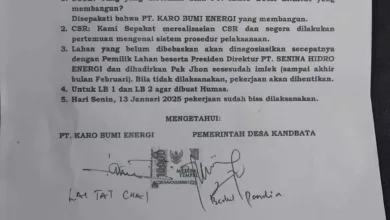 membangun.
Disepakati bahwa PT. KARO BUMI ENERGI yang membangun.
2. CSR: Kami Sepakat merealisasian CSR dan segera dilakukan
pertemuan mengenai sistem prosedur pelaksanaan.
3. Lahan yang belum dibebaskan akan dinegosiasikan secepatnya
dengan Pemilik Lahan beserta Presiden Direktur PT. SENINA HIDRO
ENERGI dan dihadirkan Pak Jhon sesudah imlek (sampai akhir
bulan Februari). Bila tidak dilaksanakan, pekerjaan akan dihentikan.
4. Untuk LB 1 dan LB 2 agar dibuat Humas.
5. Hari Senin, 13 Januari 2025 pekerjaan sudah bisa dilaksanakan.
MENGETAHUI:
PT. KARO BUMI ENERGI PEMERINTAH DESA KANDBATA
LAI TAT CHAI